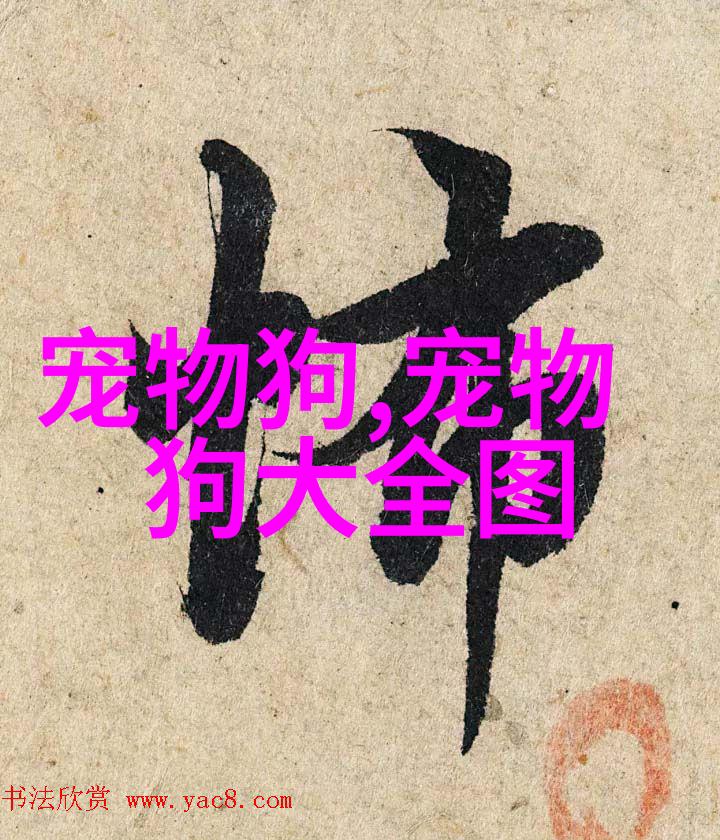 宠物狗,宠物
狗大全图
书法欣赏 www.yac8.com